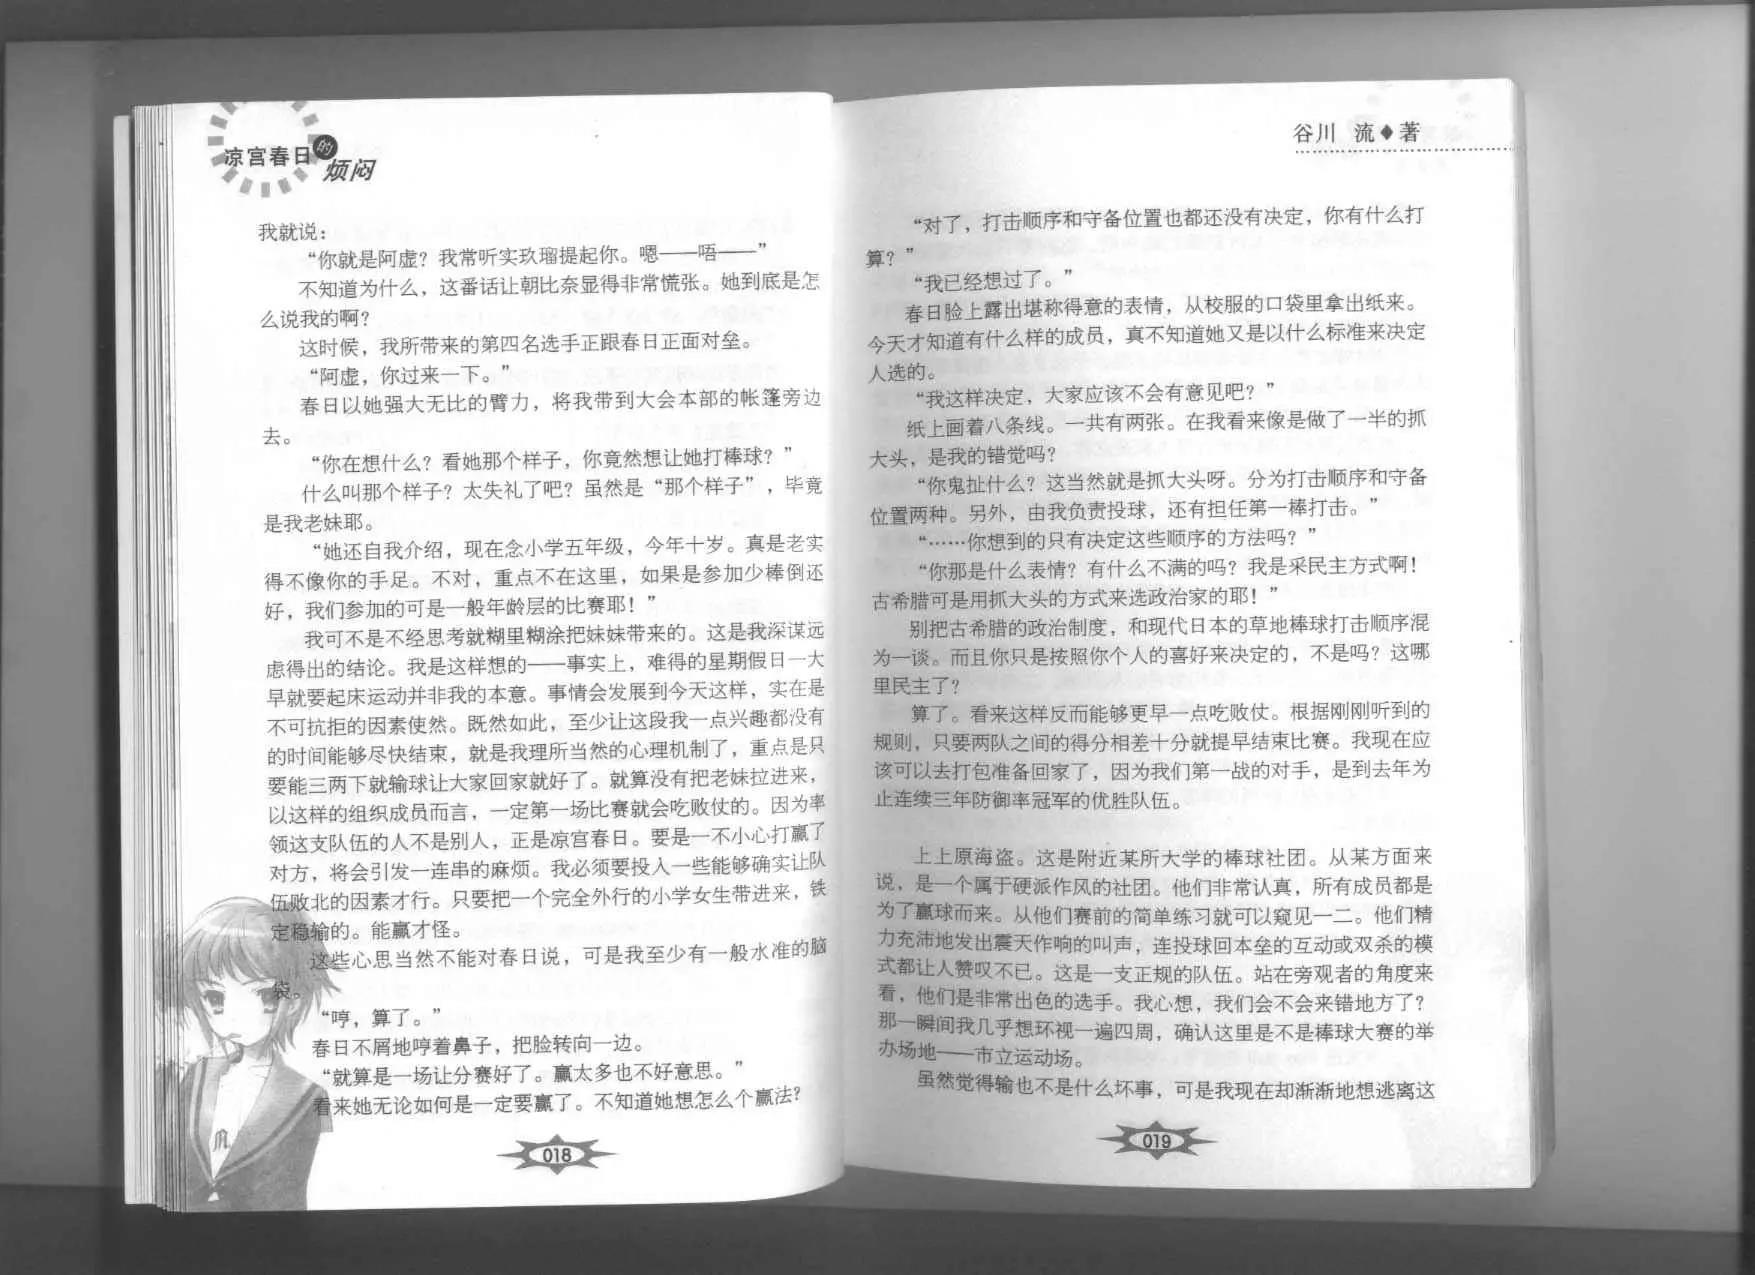 凉宫春日的烦闷
我就说：
“你就是阿虚？我常听实玖瑠提起你。嗯——唔——”
不知道为什么，这番话让朝比奈显得非常慌张。她到底是怎
么说我的啊？
这时候，我所带来的第四名选手正跟春日正面对垒。
“阿虚，你过来一下。”
春日以她强大无比的臂力，将我带到大会本部的帐篷旁边
去。
“你在想什么？看她那个样子，你竟然想让她打棒球？”
什么叫那个样子？太失礼了吧？虽然是“那个样子”，毕竟
是我老妹耶。
“她还自我介绍，现在念小学五年级，今年十岁。真是老实
得不像你的手足。不对，重点不在这里，如果是参加少棒倒还
好，我们参加的可是一般年龄层的比赛耶！”
我可不是不经思考就糊里糊涂把妹妹带来的。这是我深谋远
虑得出的结论。我是这样想的——事实上，难得的星期假日一大
早就要起床运动并非我的本意。事情会发展到今天这样，实在是
不可抗拒的因素使然。既然如此，至少让这段我一点兴趣都没有
的时间能够尽快结束，就是我理所当然的心理机制了，重点是只
要能三两下就输球让大家回家就好了。就算没有把老妹拉进来，
以这样的组织成员而言，一定第一场比赛就会吃败仗的。因为率
领这支队伍的人不是别人，正是凉宫春日。要是一不小心打赢了
对方，将会引发一连串的麻烦。我必须要投入一些能够确实让队
伍败北的因素才行。只要把一个完全外行的小学女生带进来，铁
定稳输的。能赢才怪。
这些心思当然不能对春日说，可是我至少有一般水准的脑
袋。
“哼，算了。”
春日不屑地哼着鼻子，把脸转向一边。
“就算是一场让分赛好了。赢太多也不好意思。”
看来她无论如何是一定要赢了。不知道她想怎么个赢法？
018
谷川 流◆著
“对了，打击顺序和守备位置也都还没有决定，你有什么打
算？”
“我已经想过了。”
春日脸上露出堪称得意的表情，从校服的口袋里拿出纸来。
今天才知道有什么样的成员，真不知道她又是以什么标准来决定
人选的。
“我这样决定，大家应该不会有意见吧？”
纸上画着八条线。一共有两张。在我看来像是做了一半的抓
大头，是我的错觉吗？
“你鬼扯什么？这当然就是抓大头呀。分为打击顺序和守备
位置两种。另外，由我负责投球，还有担任第一棒打击。”
“……你想到的只有决定这些顺序的方法吗？”
“你那是什么表情？有什么不满的吗？我是采民主方式啊！
古希腊可是用抓大头的方式来选政治家的耶！”
别把古希腊的政治制度，和现代日本的草地棒球打击顺序混
为一谈。而且你只是按照你个人的喜好来决定的，不是吗？这哪
里民主了？
算了。看来这样反而能够更早一点吃败仗。根据刚刚听到的
规则，只要两队之间的得分相差十分就提早结束比赛。我现在应
该可以去打包准备回家了，因为我们第一战的对手，是到去年为
止连续三年防御率冠军的优胜队伍。
上上原海盗。这是附近某所大学的棒球社团。从某方面来
说，是一个属于硬派作风的社团。他们非常认真，所有成员都是
为了赢球而来。从他们赛前的简单练习就可以窥见一二。他们精
力充沛地发出震天作响的叫声，连投球回本垒的互动或双杀的模
式都让人赞叹不已。这是一支正规的队伍。站在旁观者的角度来
看，他们是非常出色的选手。我心想，我们会不会来错地方了？
那一瞬间我几乎想环视一遍四周，确认这里是不是棒球大赛的举
办场地——市立运动场。
虽然觉得输也不是什么坏事，可是我现在却渐渐地想逃离这
019